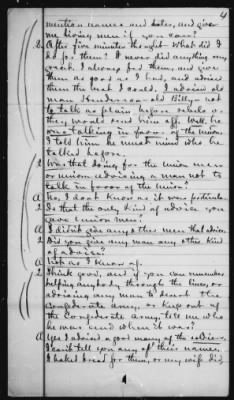 4
mention names and dates, and give
me living men if you can?
A After five minutes thought. What did I
do for them? I never did anything any
great, I always fed them, and gave
them as good as I had, and advised
them the best I could. I advised old
man Henderson old Billy not
to talk as plain before rebels or
they would send him off. Well, he
was talking in favor of the union,
I told him he must mind who he
talked before.
Q Was that doing for the union men
or union advising a man not to
talk in favor of the union?
A No, I dont know as it was particular
Q Is that the only kind of advice you
gave union men?
A I didn't give any other men that advice.
Q Did you give any man any other kind
of advice?
A Not as I know of.
Q Think good, and if you can remember
helping anybody through the lines, or
advising any man to desert the
confederate army, or keep out of
the Confederate army, tell me who
he was and when it was?
A Yes I advised a good many of the soldiers.
I can't tell you any of their names,
I baked bread for them, or my wife did,